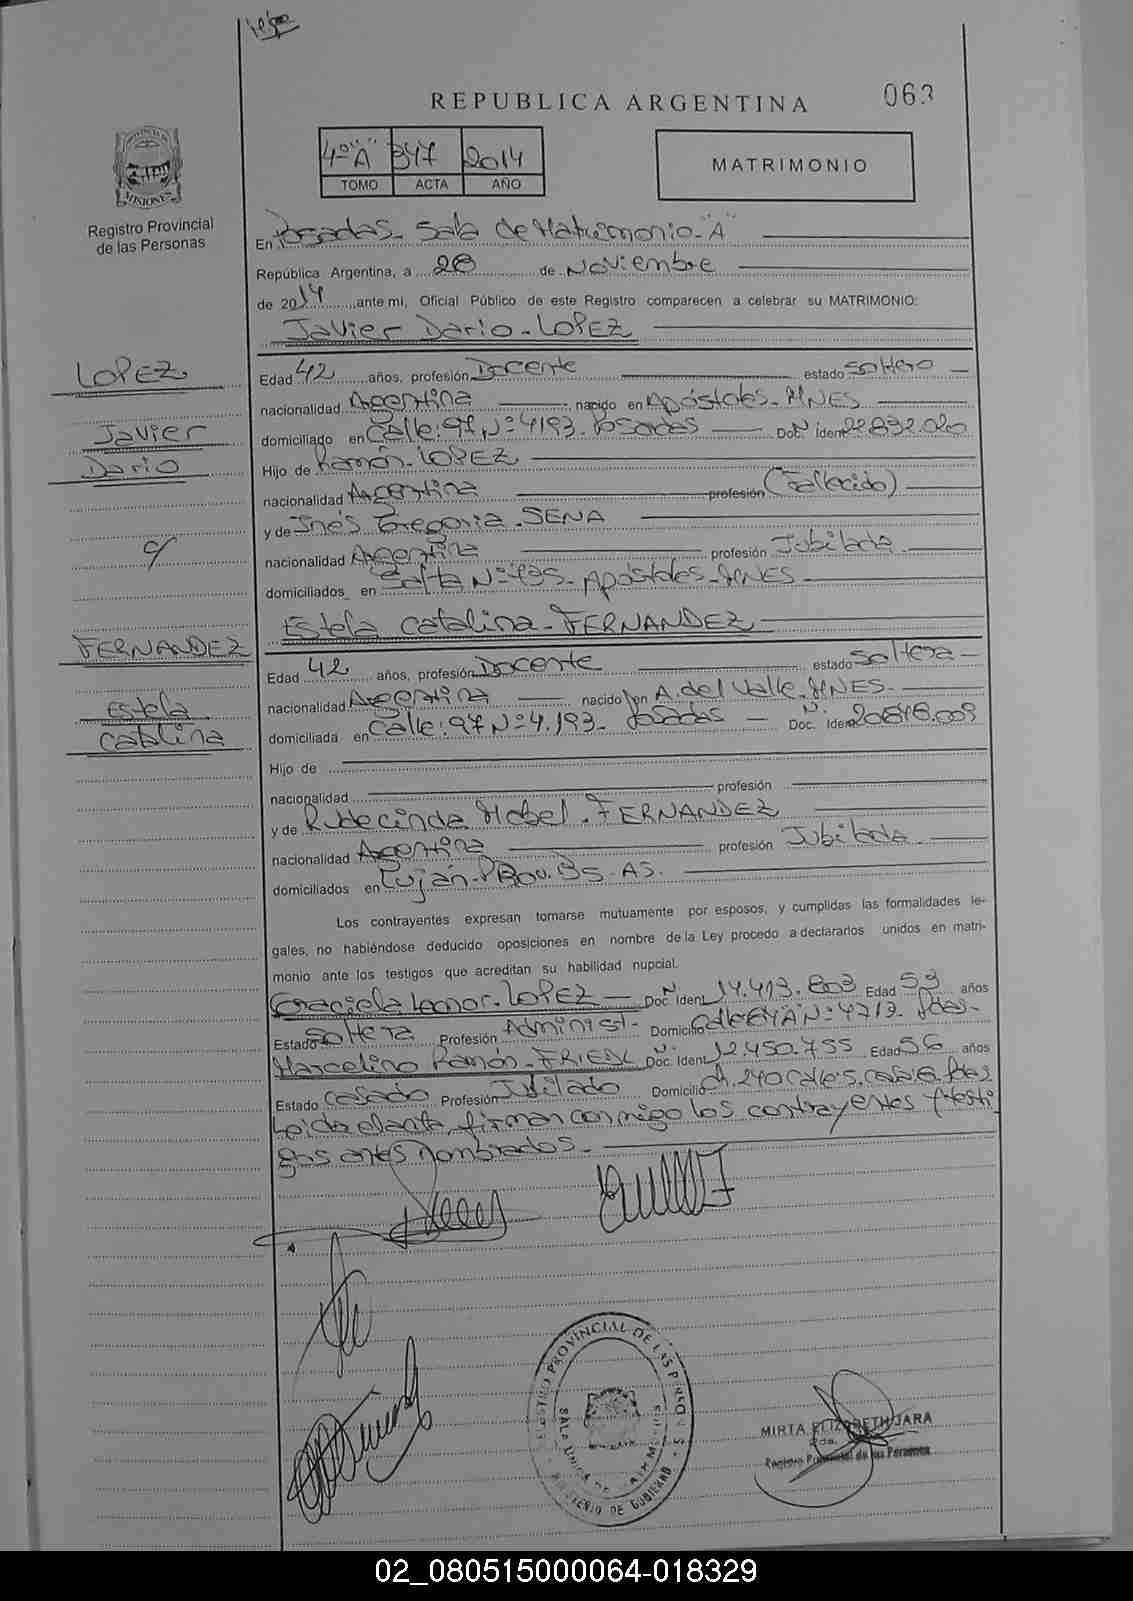 063
REPUBLICA ARGENTINA
4º "A" 347 2014
TOMO ACTA AÑO
MATRIMONIO
MISIONES
Registro Provincial
de las Personas
En Posadas - Sala de Matrimonio - "A"
República Argentina, a 28 de Noviembre
de 2014 ante mi, Oficial Público de este Registro comparecen a celebrar su MATRIMONIO:
Javier Dario - LOPEZ
LOPEZ
Javier
Dario
Edad 42 años, profesión Docente estado Soltero
nacionalidad Argentina nacido en Apóstoles - MNES
domiciliado en Calle: 97 Nº 4193 - Posadas Doc. Ident. Nº 22.832.020
Hijo de Ramón - LOPEZ
nacionalidad Argentina profesión (Fallecido)
y de Inés Gregoria - SENA
nacionalidad Argentina profesión Jubilada
domiciliados en Salta Nº 435 - Apóstoles - MNES
c/
Estela Catalina - FERNANDEZ
FERNANDEZ
Estela
Catalina
Edad 42 años, profesión Docente estado Soltera
nacionalidad Argentina nacido en A. del Valle - MNES
domiciliada en Calle: 97 Nº 4.193 - Posadas Doc. Ident. Nº
Hijo de
nacionalidad profesión
y de Rudecinda Mabel - FERNANDEZ
nacionalidad Argentina profesión Jubilada
domiciliados en Luján - Prov. Bs. AS.
Los contrayentes expresan tomarse mutuamente por esposos, y cumplidas las formalidades le-
gales, no habiéndose deducido oposiciones en nombre de la Ley procedo a declararlos unidos en matri-
monio ante los testigos que acreditan su habilidad nupcial.
Graciela Leonor - LOPEZ Doc. Ident. Nº 14.413.803 Edad 53 años
Estado Soltera Profesión Administ. Domicilio Calle Nº 4713 - Pdas -
Marcelino Ramón - FRIEDL Doc. Ident. Nº 12.450.755 Edad 56 años
Estado Casado Profesión Jubilado Domicilio Ch. 240 Calle 5 Casa 6 Pdas
Leida el acta, firman conmigo los contrayentes y testi
gos antes nombrados. -
REGISTRO PROVINCIAL DE LAS PERSONAS
MINISTERIO DE GOBIERNO
MIRTA ELIZABETH JARA
Registro Provincial de las Personas
02_080515000064-018329